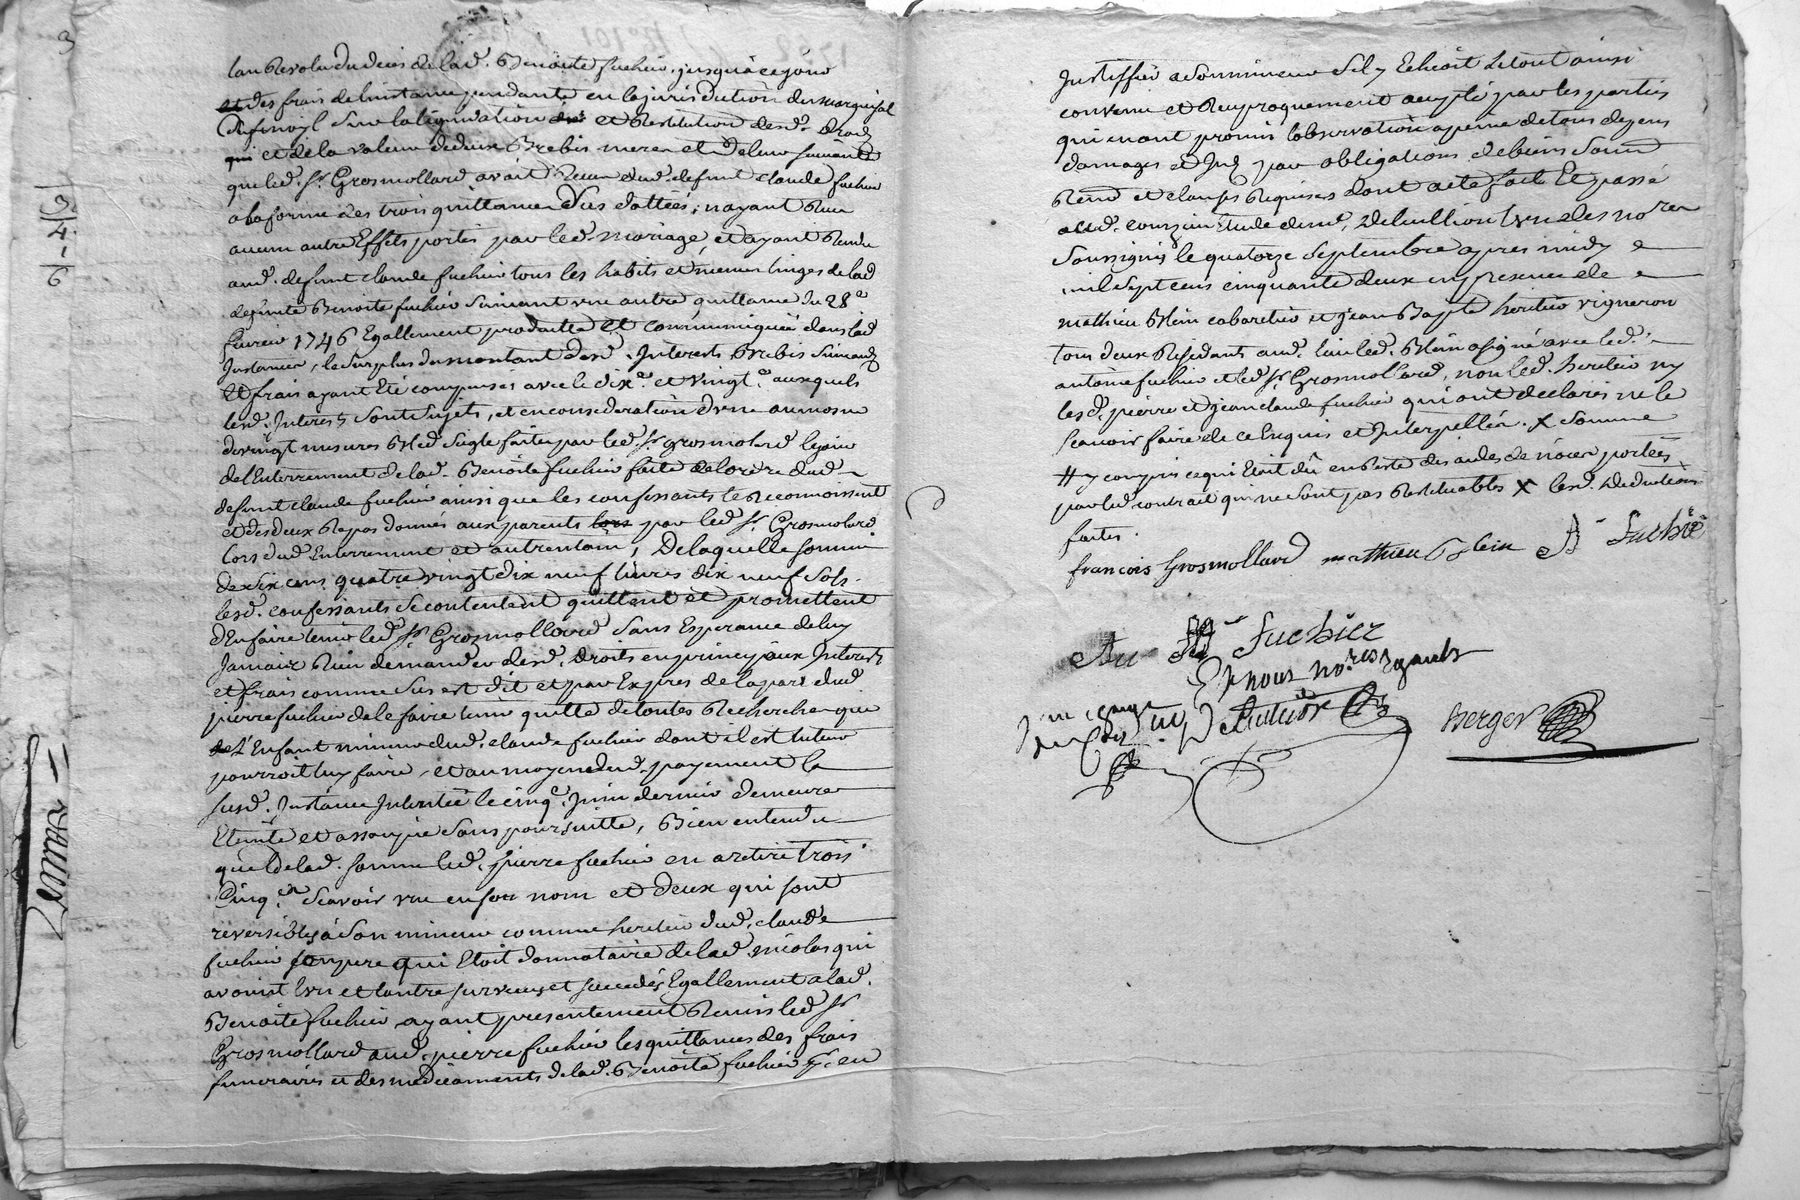 lan Revolu du deces de lad. Benoite fuchier, jusqu'a ce jour
et des frais de linstance pendante en la jurisdiction du marquisat
sur la liquidation et Restitution desd. droits
qui et de la valeur de deux Brebis meres et de leur suivants
que led. Sr. Grosmollard avoit Receu dud. defunt claude fuchier
a la forme des trois quittances sus dattées, nayant Receu
aucun autre Effets portés par led. mariage, et ayant Rendu
aud. defunt claude fuchier tous les habits et menus linges de lad
defunte Benoite fuchier suivant une autre quittance du 28e
fevrier 1746 Egallement produitte et communiquée dans lad
Instance, le surplus du montant desd. Interests Brebis suivants
et frais ayant Eté compensés avec le dixe. et vingte. auxquels
lesd. Interests sont sujets, et en consideration d'une aumosne
de vingt mesures Bled seigle faites par led. Sr. grosmolard le jour
de l'Enterrement de lad. Benoite fuchier faite de lordre dud.
defunt claude fuchier ainsi que les confessants le Reconnoissent
et des deux Repas donnés aux parents lors par led. Sr. Grosmolard
lors dud. Enterrement et autrentain, De laquelle somme
de six cens quatre vingt dix neuf livres dix neuf sols
lesd. confessants se contentent quittent et promettent
d'En faire tenir led. Sr Grosmollard sans Esperance de luy
Jamais Rien demander desd. droits en principaux Interests
et frais comme sus est dit et par Exprés de la part dud
pierre fuchier de le faire tenir quitte de toutes Recherches que
de l'Enfant mineur dud. claude fuchier dont il est tuteur
pourroit luy faire, et au moyen dud. payement la
susd. Instance Intentée le cinqe. Juin dernier demeure
Eteinte et assoupie sans poursuitte, Bien entendu
que de lad. somme led. pierre fuchier en a retiré trois
Cinqe. scavoir un en son nom et deux qui sont
reversibles à son mineur comme heritier dud. claude
fuchier son pere qui Etoit donnataire de lad. nicolas qui
avoint l'un et lautre survecus et succedés Egallement a lad.
Benoite fuchier, ayant presentement Remis led. Sr
Grosmollard aud. pierre fuchier les quittances des frais
funeraires et des medicaments de lad. Benoite fuchier pr. en
Justiffier a son mineur sil y Echeoit Le tout ainsi
convenu et Reciproquement accepté par les parties
qui en ont promis lobservation a peine de tous depens
damages et Int par obligations de biens soum
Rend et clauses Requises dont acte fait Et passé
aud. courzieu Etude de me. Delullion lun des nores
soussignés le quatorze septembre apres midy
mil sept cens cinquante deux en presence de
mathieu Blein cabaretier et jean Bapte heritier vigneron
tous deux Residants aud. lieu led. Blein a signé avec led.
antoine fuchier et led. Sr. Grosmollard, non led. heritier ny
lesd. pierre et jean claude fuchier qui ont declarés ne le
scavoir faire de ce Enquis et Interpellés. X somme
# y compris ce qui Etoit dû en Reste des andes de nôces portées
par led contrait qui ne sont pas Restituables X lesd. Deductions
faites.
francois Grosmollard mathieu Blein A Fuchié
Fuchier
Et nous nores Rgauls
Delullion
Berger